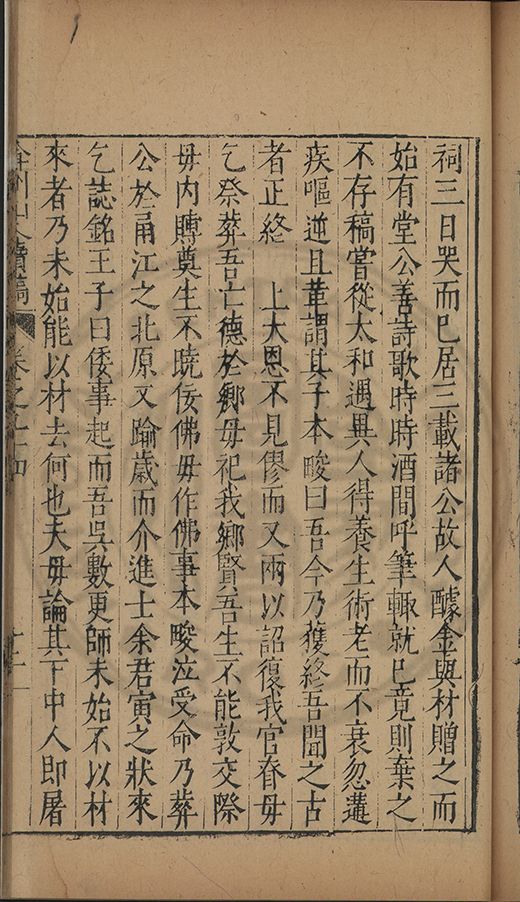 祠三日哭而已居三載諸公故人醵金與材贈之而
始有堂公善詩歌時時酒間呼筆輙就已竟則棄之
不存稿嘗從太和遇異人得養生術老而不衰忽遘
疾嘔逆且革謂其子本畯曰吾今乃獲終吾聞之古
者正終　上大恩不見僇而又兩以詔復我官眷毋
乞祭葬吾亡德於鄉毋祀我鄉賢吾生不能敦交際
毋内賻奠生不曉佞佛毋作佛事本畯泣受命乃葬
公於甬江之北原又踰歲而介進士余君寅之狀來
乞誌銘王子曰倭事起而吾吳數更師未始不以材
來者乃未始能以材去何也夫毋論其下中人即屠
弇州山人續稿 卷之九十四